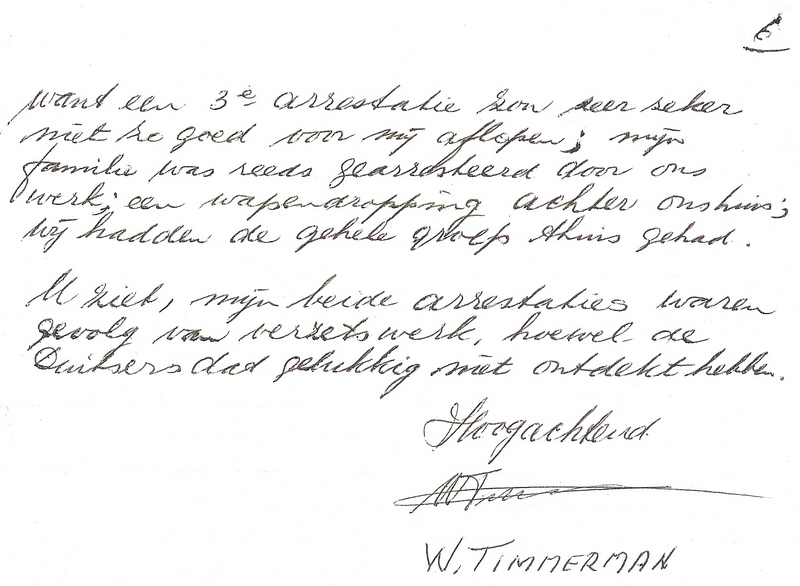 6
want een 3e arrestatie zou zeer zeker
niet zo goed voor mij aflopen; mijn
familie was reeds gearresteerd door ons
werk; een wapendropping achter ons huis;
wij hadden de gehele groep thuis gehad.
U ziet, mijn beide arrestaties waren
gevolg van verzetswerk, hoewel de
Duitsers dad gelukkig niet ontdekt hebben.
Hoogachtend
W. TIMMERMAN